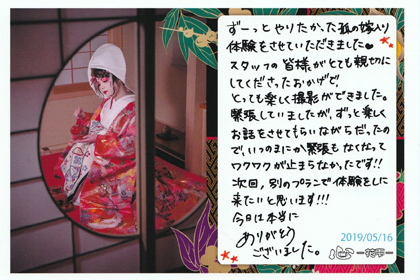 ずーっとやりたかった狐の嫁入り
体験をさせていただきました♥
スタッフの皆様がとても親切に
してくださったおかげで
とっても楽しく撮影ができました。
緊張していましたが、ずっと楽しく
お話をさせてもらいながらだったの
で、いつのまにか緊張もなくなって
ワクワクが止まらなかったです!!
次回、別のプランで体験をしに
来たいと思います!!!
今日は本当に
ありがとう
ございました。
2019/05/16
心 -花雫-